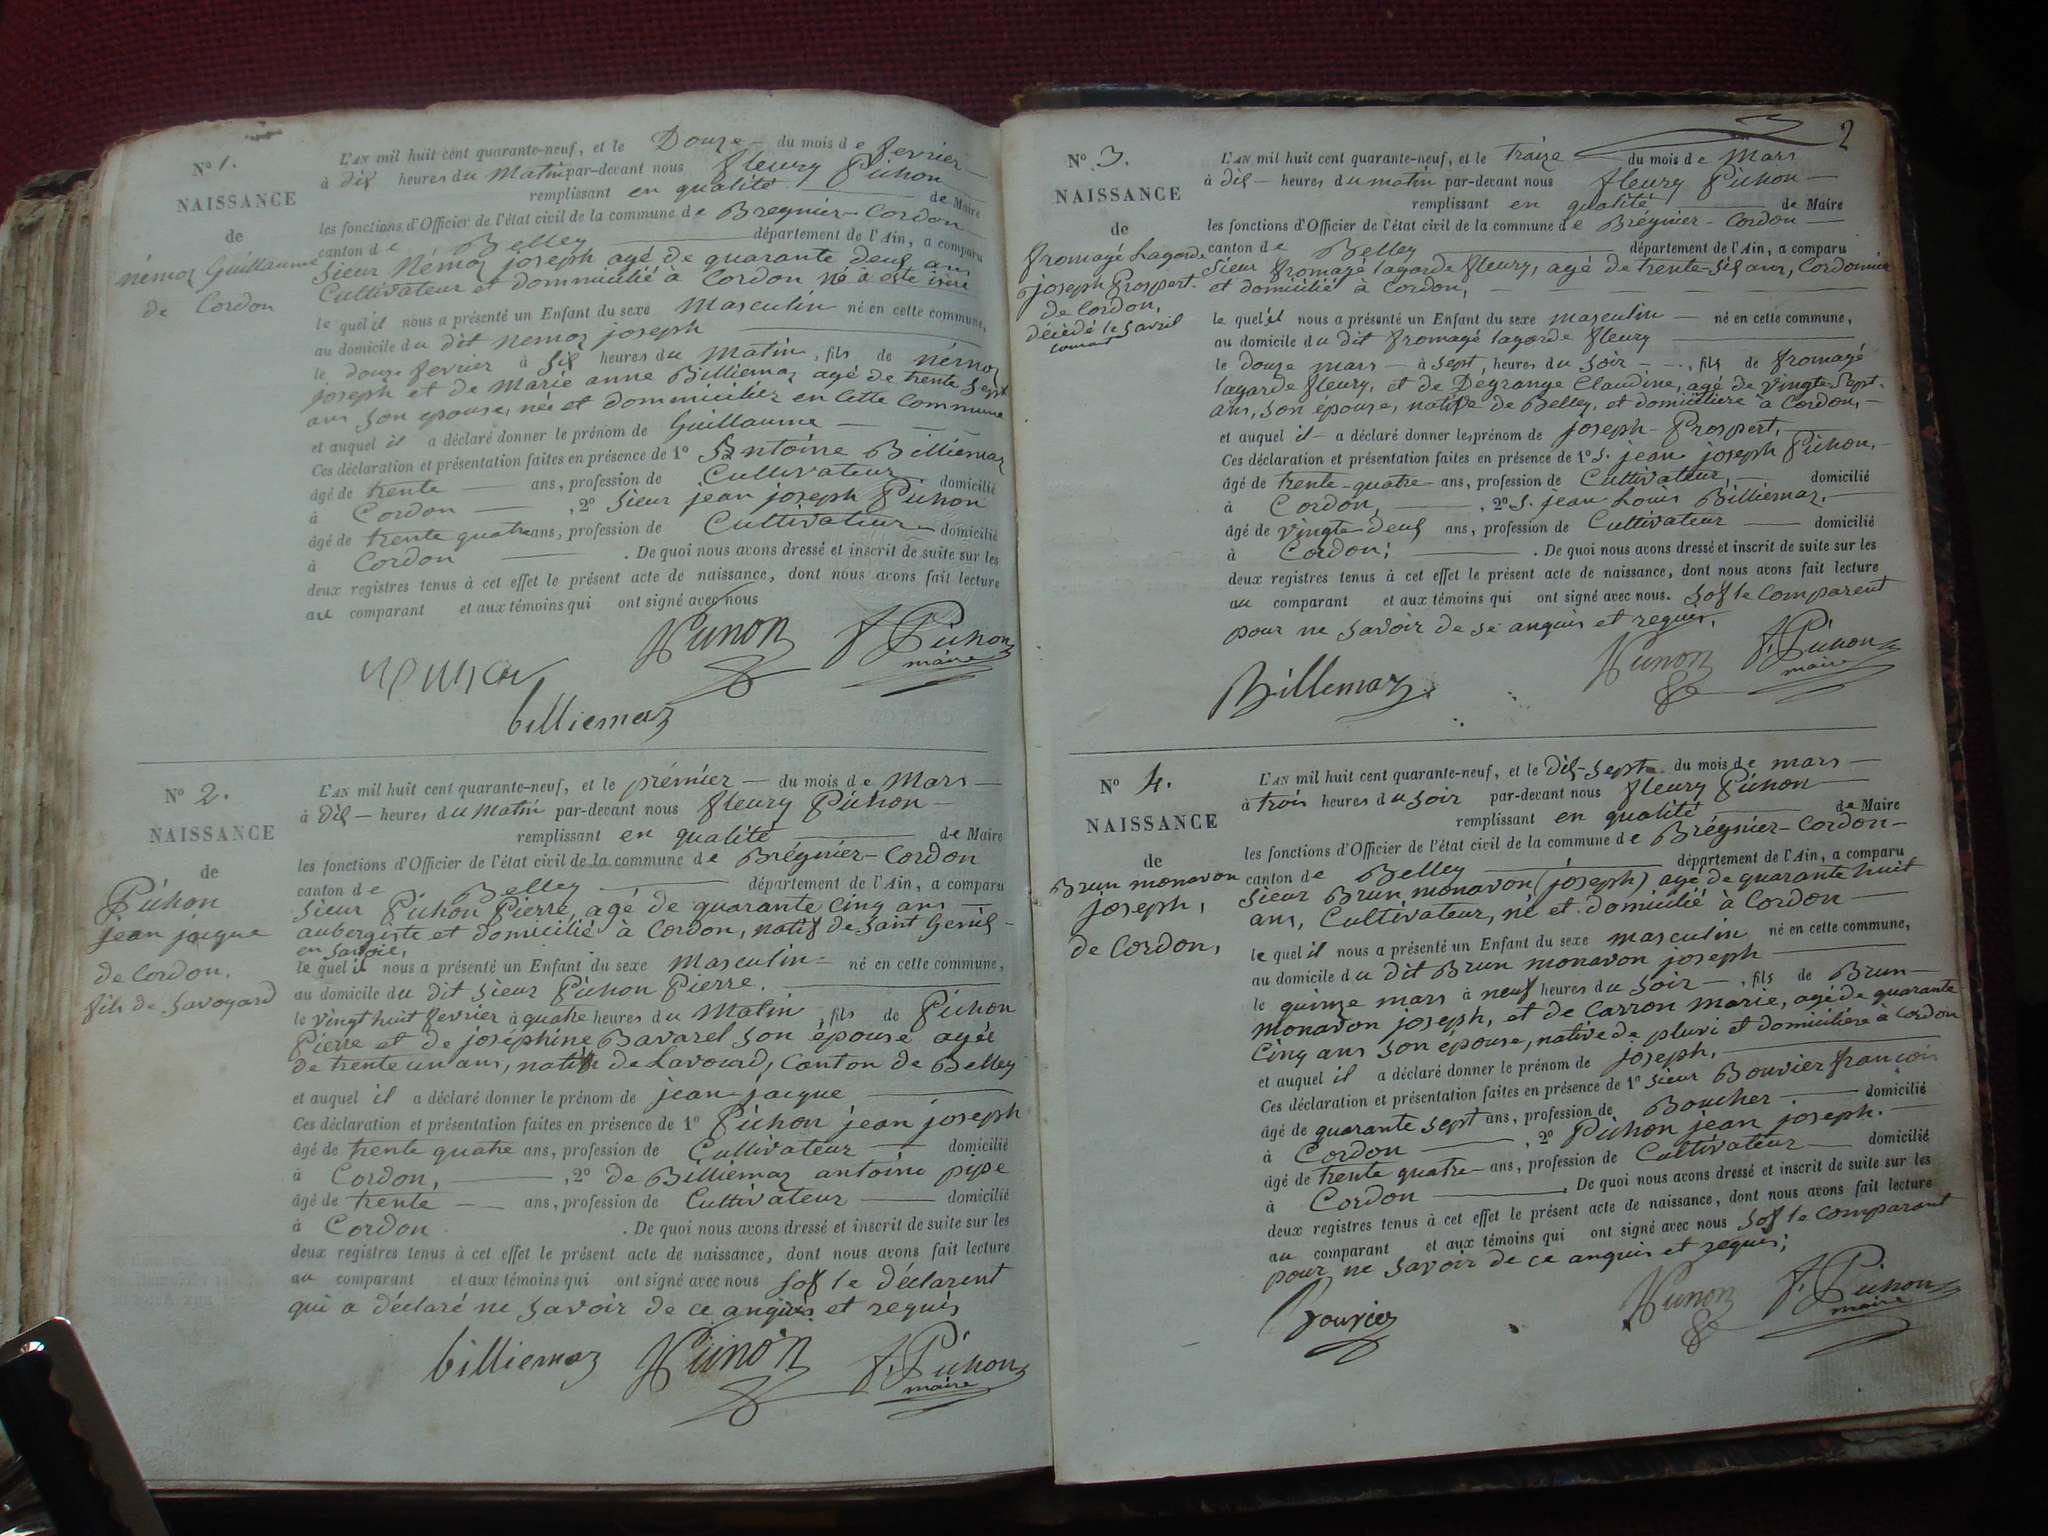 N° 1.
NAISSANCE
de
némoz Guillaume
de Cordon
L'AN mil huit cent quarante-neuf, et le Douze — du mois de fevrier —
à dix heures du Matin par-devant nous fleury Pichon
remplissant en qualité — de Maire
les fonctions d'Officier de l'état civil de la commune de Bregnier-Cordon
canton de Belley — département de l'Ain, a comparu
Sieur Némoz joseph agé de quarante deux ans
Cultivateur et dommicilié à Cordon né à
le quel il nous a présenté un Enfant du sexe Masculin né en cette commune,
au domicile du dit nemoz joseph —
le douze fevrier à six heures du Matin, fils de némoz
joseph et de Marie anne Billiemaz agé de trente sept
ans son epouse, née et dommiciliéz en cette Commune
et auquel il a déclaré donner le prénom de Guillaume —
Ces déclaration et présentation faites en présence de 1° Antoine Billiemaz
âgé de trente — ans, profession de Cultivateur domicilié
à Cordon — , 2° Sieur jean joseph Pichon
âgé de trente quatre ans, profession de Cultivateur — domicilié
à Cordon — . De quoi nous avons dressé et inscrit de suite sur les
deux registres tenus à cet effet le présent acte de naissance, dont nous avons fait lecture
au comparant et aux témoins qui ont signé avec nous
Pichon F. Pichon
maire
billiemaz
N° 2.
NAISSANCE
de
Pichon
jean jacque
de Cordon.
fils de Savoyard
L'AN mil huit cent quarante-neuf, et le prémier — du mois de Mars —
à dix — heures du Matin par-devant nous fleury Pichon —
remplissant en qualité — de Maire
les fonctions d'Officier de l'état civil de la commune de Brégnier-Cordon
canton de Belley — département de l'Ain, a comparu
Sieur Pichon Pierre, agé de quarante cinq ans —
aubergiste et domicilié à Cordon, natif de Saint Genix -
en Savoie,
le quel il nous a présenté un Enfant du sexe Masculin - né en cette commune,
au domicile du dit Sieur Pichon Pierre. —
le vingt huit fevrier à quatre heures du Matin, fils de Pichon
Pierre et de joséphine Bavarel son épouse agée
de trente un ans, native de Lavourd, Canton de Belley
et auquel il a déclaré donner le prénom de jean jacque —
Ces déclaration et présentation faites en présence de 1° Pichon jean joseph
âgé de trente quatre ans, profession de Cultivateur — domicilié
à Cordon, — , 2° de Billiemaz antoine pipe
âgé de trente — ans, profession de Cultivateur — domicilié
à Cordon . De quoi nous avons dressé et inscrit de suite sur les
deux registres tenus à cet effet le présent acte de naissance, dont nous avons fait lecture
au comparant et aux témoins qui ont signé avec nous sof le déclarent
qui a déclaré ne savoir de ce anquis et requis
billiemaz Pichon F. Pichon
maire
2
N° 3.
NAISSANCE
de
fromagé Lagorde
joseph Prospert.
de Cordon,
décédé le 5 avril
courant
L'AN mil huit cent quarante-neuf, et le traize — du mois de Mars
à dix — heures du matin par-devant nous fleury Pichon —
remplissant en qualité — de Maire
les fonctions d'Officier de l'état civil de la commune de Brégnier-Cordon —
canton de Belley — département de l'Ain, a comparu
Sieur fromagé lagorde fleury, agé de trente-six ans, Cordonnier
et domicilié à Cordon, —
le quel il nous a présenté un Enfant du sexe masculin — né en cette commune,
au domicile du dit fromagé lagorde fleury —
le douze mars — à sept, heures du soir - — , fils de fromagé
lagarde fleury, et de Degrange Claudine, agé de vingte-sept-
ans, son épouse, native de Belley, et domicilière à Cordon, —
et auquel il — a déclaré donner les prénom de joseph - Prospert,
Ces déclaration et présentation faites en présence de 1° S. jean joseph Pichon, -
âgé de trente-quatre ans, profession de Cultivateur, — domicilié
à Cordon, — , 2° S. jean Louis Billiemaz, —
âgé de vingte-deux ans, profession de Cultivateur — domicilié
à Cordon; — . De quoi nous avons dressé et inscrit de suite sur les
deux registres tenus à cet effet le présent acte de naissance, dont nous avons fait lecture
au comparant et aux témoins qui ont signé avec nous. sof le comparent
pour ne savoir de se anquis et requis.
Billemaz Pichon F. Pichon
maire
N° 4.
NAISSANCE
de
Brun monavon
joseph,
de Cordon,
L'AN mil huit cent quarante-neuf, et le dix-sept — du mois de mars —
à trois heures du soir par-devant nous fleury Pichon —
remplissant en qualité — de Maire
les fonctions d'Officier de l'état civil de la commune de Brégnier-Cordon -
canton de Belley — département de l'Ain, a comparu
Sieur Brun monavon (joseph) agé de quarante huit
ans, Cultivateur, né et domicilié à Cordon —
le quel il nous a présenté un Enfant du sexe masculin né en cette commune,
au domicile du dit Brun monavon joseph —
le quinze mars à neuf heures du soir — , fils de Brun -
monavon joseph, et de Carron Marie, agé de quarante-
cinq ans son épouse, native de pluvi et domicilière à Cordon
et auquel il a déclaré donner le prénom de joseph, —
Ces déclaration et présentation faites en présence de 1° Sieur Bouvier françois
âgé de quarante sept ans, profession de Boucher — domicilié
à Cordon — , 2° Pichon jean joseph. —
âgé de trente quatre - ans, profession de Cultivateur — domicilié
à Cordon — . De quoi nous avons dressé et inscrit de suite sur les
deux registres tenus à cet effet le présent acte de naissance, dont nous avons fait lecture
au comparant et aux témoins qui ont signé avec nous sof le comparant
pour ne savoir de ce anquis et requis;
Bouvier Pichon F. Pichon
maire